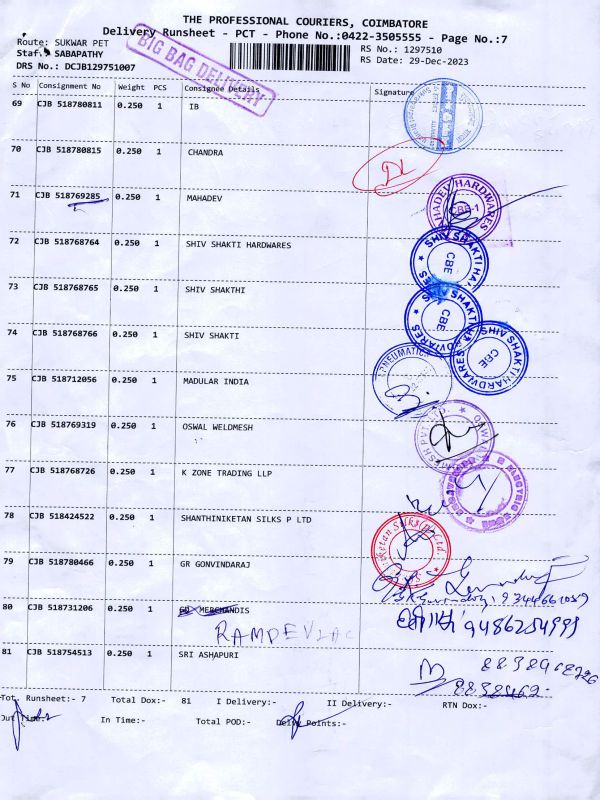 THE PROFESSIONAL COURIERS, COIMBATORE
Delivery Runsheet - PCT - Phone No.:0422-3505555 - Page No.:7
Route: SUKWAR PET
RS No.: 1297510
Staf. SABAPATHY
RS Date: 29-Dec-2023
DRS No.: DCJB129751007
BIG BAG DELIVERY
S No Consignment No Weight PCS Consignee Details Signature
69 CJB 518780811 0.250 1 IB
70 CJB 518780815 0.250 1 CHANDRA
71 CJB 518769285 0.250 1 MAHADEV
HADEV HARDWARES
CBE-1
72 CJB 518768764 0.250 1 SHIV SHAKTI HARDWARES
SHIV SHAKTI
CBE
73 CJB 518768765 0.250 1 SHIV SHAKTHI
SHIV SHAKTI
CBE
74 CJB 518768766 0.250 1 SHIV SHAKTI
SHIV SHAKTI HARDWIARES
CBE
75 CJB 518712056 0.250 1 MADULAR INDIA
PNEUMATIC
76 CJB 518769319 0.250 1 OSWAL WELDMESH
OSWAL
PVT LTD.
77 CJB 518768726 0.250 1 K ZONE TRADING LLP
78 CJB 518424522 0.250 1 SHANTHINIKETAN SILKS P LTD
iketan Silks (p) Ltd.
79 CJB 518780466 0.250 1 GR GONVINDARAJ
80 CJB 518731206 0.250 1 MERCHANDIS
RAMDEV
9486254999
81 CJB 518754513 0.250 1 SRI ASHAPURI
Tot. Runsheet:- 7 Total Dox:- 81 I Delivery:- II Delivery:- RTN Dox:-
Out Time:- In Time:- Total POD:- Delv Points:-